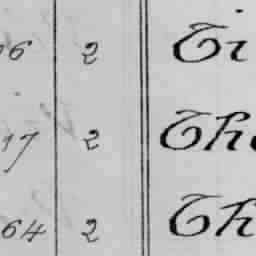 06 2 Ti
17 2 The
64 2 Th